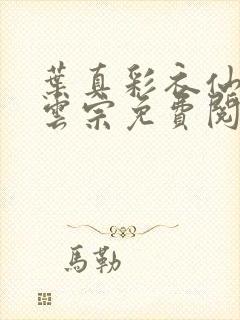 葉真彩衣仙
雲宗免費閱
馬勒